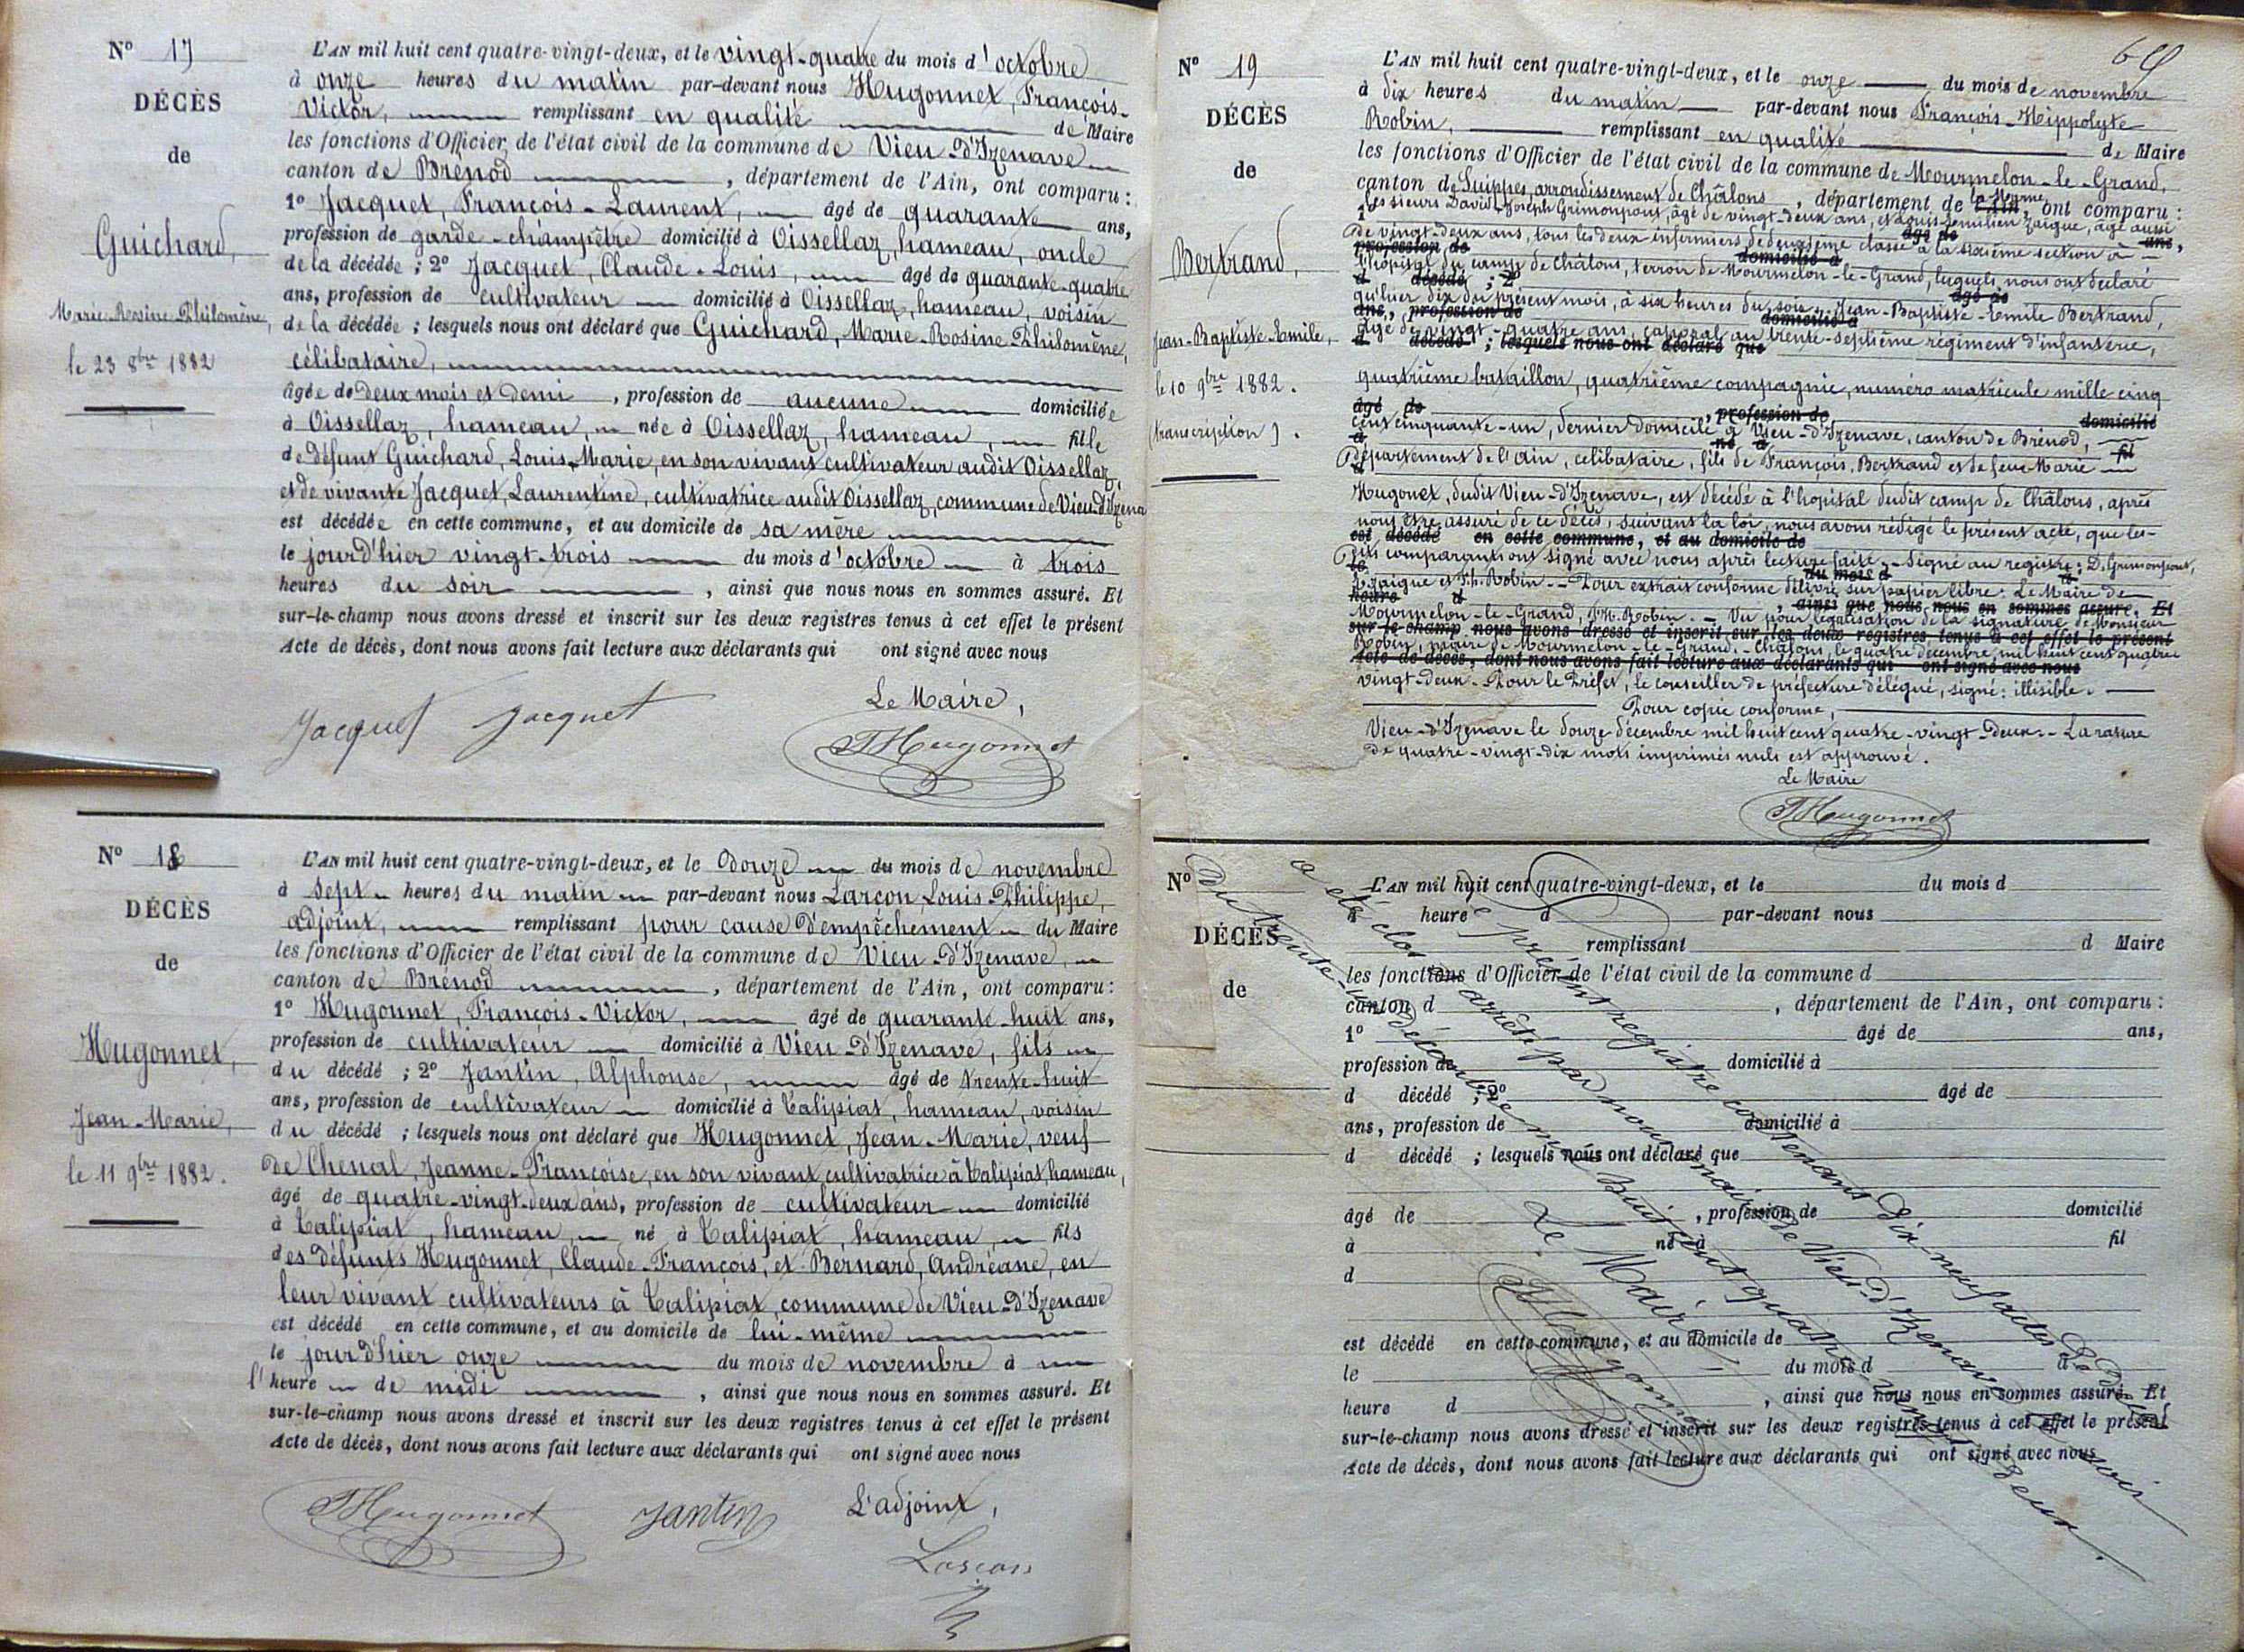 N° 17
DÉCÈS
de
Guichard,
Marie-Rosine-Philomène,
le 23 8bre 1882
L'AN mil huit cent quatre-vingt-deux, et le vingt-quatre du mois d'octobre
à onze heures du matin par-devant nous Hugonnet, François-
Victor, remplissant en qualité de Maire
les fonctions d'Officier de l'état civil de la commune de Vieu-d'Izenave
canton de Brénod, département de l'Ain, ont comparu :
1° Jacquet, François-Laurent, âgé de quarante ans,
profession de garde-champêtre domicilié à Oissellaz, hameau, oncle
de la décédée ; 2° Jacquet, Claude-Louis, âgé de quarante-quatre
ans, profession de cultivateur domicilié à Oissellaz, hameau, voisin
de la décédée ; lesquels nous ont déclaré que Guichard, Marie-Rosine-Philomène,
célibataire,
âgée de deux mois et demi, profession de aucune domiciliée
à Oissellaz, hameau, née à Oissellaz, hameau, fille
de défunt Guichard, Louis-Marie, en son vivant cultivateur audit Oissellaz,
et de vivante Jacquet, Laurentine, cultivatrice audit Oissellaz, commune de Vieu-d'Izena
est décédée en cette commune, et au domicile de sa mère
le jour d'hier vingt-trois du mois d'octobre à trois
heures du soir, ainsi que nous nous en sommes assuré. Et
sur-le-champ nous avons dressé et inscrit sur les deux registres tenus à cet effet le présent
Acte de décès, dont nous avons fait lecture aux déclarants qui ont signé avec nous
Le Maire,
Jacquet Jacquet FHugonnet
N° 18
DÉCÈS
de
Hugonnet,
Jean-Marie,
le 11 9bre 1882.
L'AN mil huit cent quatre-vingt-deux, et le douze du mois de novembre
à sept heures du matin par-devant nous Larçon, Louis-Philippe,
adjoint, remplissant pour cause d'empêchement du Maire
les fonctions d'Officier de l'état civil de la commune de Vieu-d'Izenave,
canton de Brénod, département de l'Ain, ont comparu :
1° Hugonnet, François-Victor, âgé de quarante-huit ans,
profession de cultivateur domicilié à Vieu-d'Izenave, fils
du décédé ; 2° Jantin, Alphonse, âgé de trente-huit
ans, profession de cultivateur domicilié à Talipiat, hameau, voisin
du décédé ; lesquels nous ont déclaré que Hugonnet, Jean-Marie, veuf
de Cheval, Jeanne-Françoise, en son vivant cultivatrice à Talipiat, hameau,
âgé de quatre-vingt-deux ans, profession de cultivateur domicilié
à Talipiat, hameau, né à Talipiat, hameau, fils
des défunts Hugonnet, Claude-François, et Bernard, Andréane, en
leur vivant cultivateurs à Talipiat, commune de Vieu-d'Izenave
est décédé en cette commune, et au domicile de lui-même
le jour d'hier onze du mois de novembre à
l'heure de midi, ainsi que nous nous en sommes assuré. Et
sur-le-champ nous avons dressé et inscrit sur les deux registres tenus à cet effet le présent
Acte de décès, dont nous avons fait lecture aux déclarants qui ont signé avec nous
FHugonnet Jantin L'adjoint,
Larçon
N° 19
DÉCÈS
de
Bertrand,
Jean-Baptiste-Emile,
le 10 9bre 1882.
(transcription).
L'AN mil huit cent quatre-vingt-deux, et le onze du mois de novembre
à dix heures du matin par-devant nous François-Hippolyte
Robin, remplissant en qualité de Maire
les fonctions d'Officier de l'état civil de la commune de Mourmelon-le-Grand,
canton de Suippes, arrondissement de Châlons, département de la Marne, ont comparu :
les sieurs David-Joseph Grimonpont, âgé de vingt-deux ans, et Louis-Emilien Zaigue, âgé aussi
de vingt-deux ans, tous les deux infirmiers de deuxième classe à la sixième section à
l'hôpital du camp de Châlons, terroir de Mourmelon-le-Grand, lesquels nous ont déclaré
qu'hier dix du présent mois, à six heures du soir, Jean-Baptiste-Emile Bertrand,
âgé de vingt-quatre ans, caporal au trente-septième régiment d'infanterie,
quatrième bataillon, quatrième compagnie, numéro matricule mille cinq
cent cinquante-un, dernier domicile à Vieu-d'Izenave, canton de Brénod,
département de l'Ain, célibataire, fils de François Bertrand et de feue Marie
Hugonet, dudit Vieu-d'Izenave, est décédé à l'hôpital dudit camp de Châlons, après
nous être assuré de ce décès, suivant la loi, nous avons rédigé le présent acte, que les-
dits comparants ont signé avec nous après lecture faite. - Signé au registre : D. Grimonpont,
L. Zaigue et F.H. Robin. - Pour extrait conforme délivré sur papier libre. Le Maire de
Mourmelon-le-Grand, F.H. Robin. - Vu pour légalisation de la signature de Monsieur
Robin, maire de Mourmelon-le-Grand. - Châlons, le quatre décembre mil huit cent quatre
vingt-deux. - Pour le Préfet, le conseiller de préfecture délégué, signé : illisible.
Pour copie conforme,
Vieu-d'Izenave le douze décembre mil huit cent quatre-vingt-deux. - La rature
de quatre-vingt-dix mots imprimés nuls est approuvé.
Le Maire
FHugonnet
N°
DÉCÈS
de
L'AN mil huit cent quatre-vingt-deux, et le du mois d
à heure d par-devant nous
remplissant d Maire
les fonctions d'Officier de l'état civil de la commune d
canton d, département de l'Ain, ont comparu :
1° âgé de ans,
profession de domicilié à
d décédé ; 2° âgé de
ans, profession de domicilié à
d décédé ; lesquels nous ont déclaré que
âgé de, profession de domicilié
à né à fil
d
est décédé en cette commune, et au domicile de
le du mois d à
heure d, ainsi que nous nous en sommes assuré. Et
sur-le-champ nous avons dressé et inscrit sur les deux registres tenus à cet effet le présent
Acte de décès, dont nous avons fait lecture aux déclarants qui ont signé avec nous
Le présent registre contenant dix-neuf actes de décès
a été clos et arrêté par nous maire de Vieu-d'Izenave le soir
du trente-un décembre mil huit cent quatre-vingt-deux.
Le Maire
FHugonnet